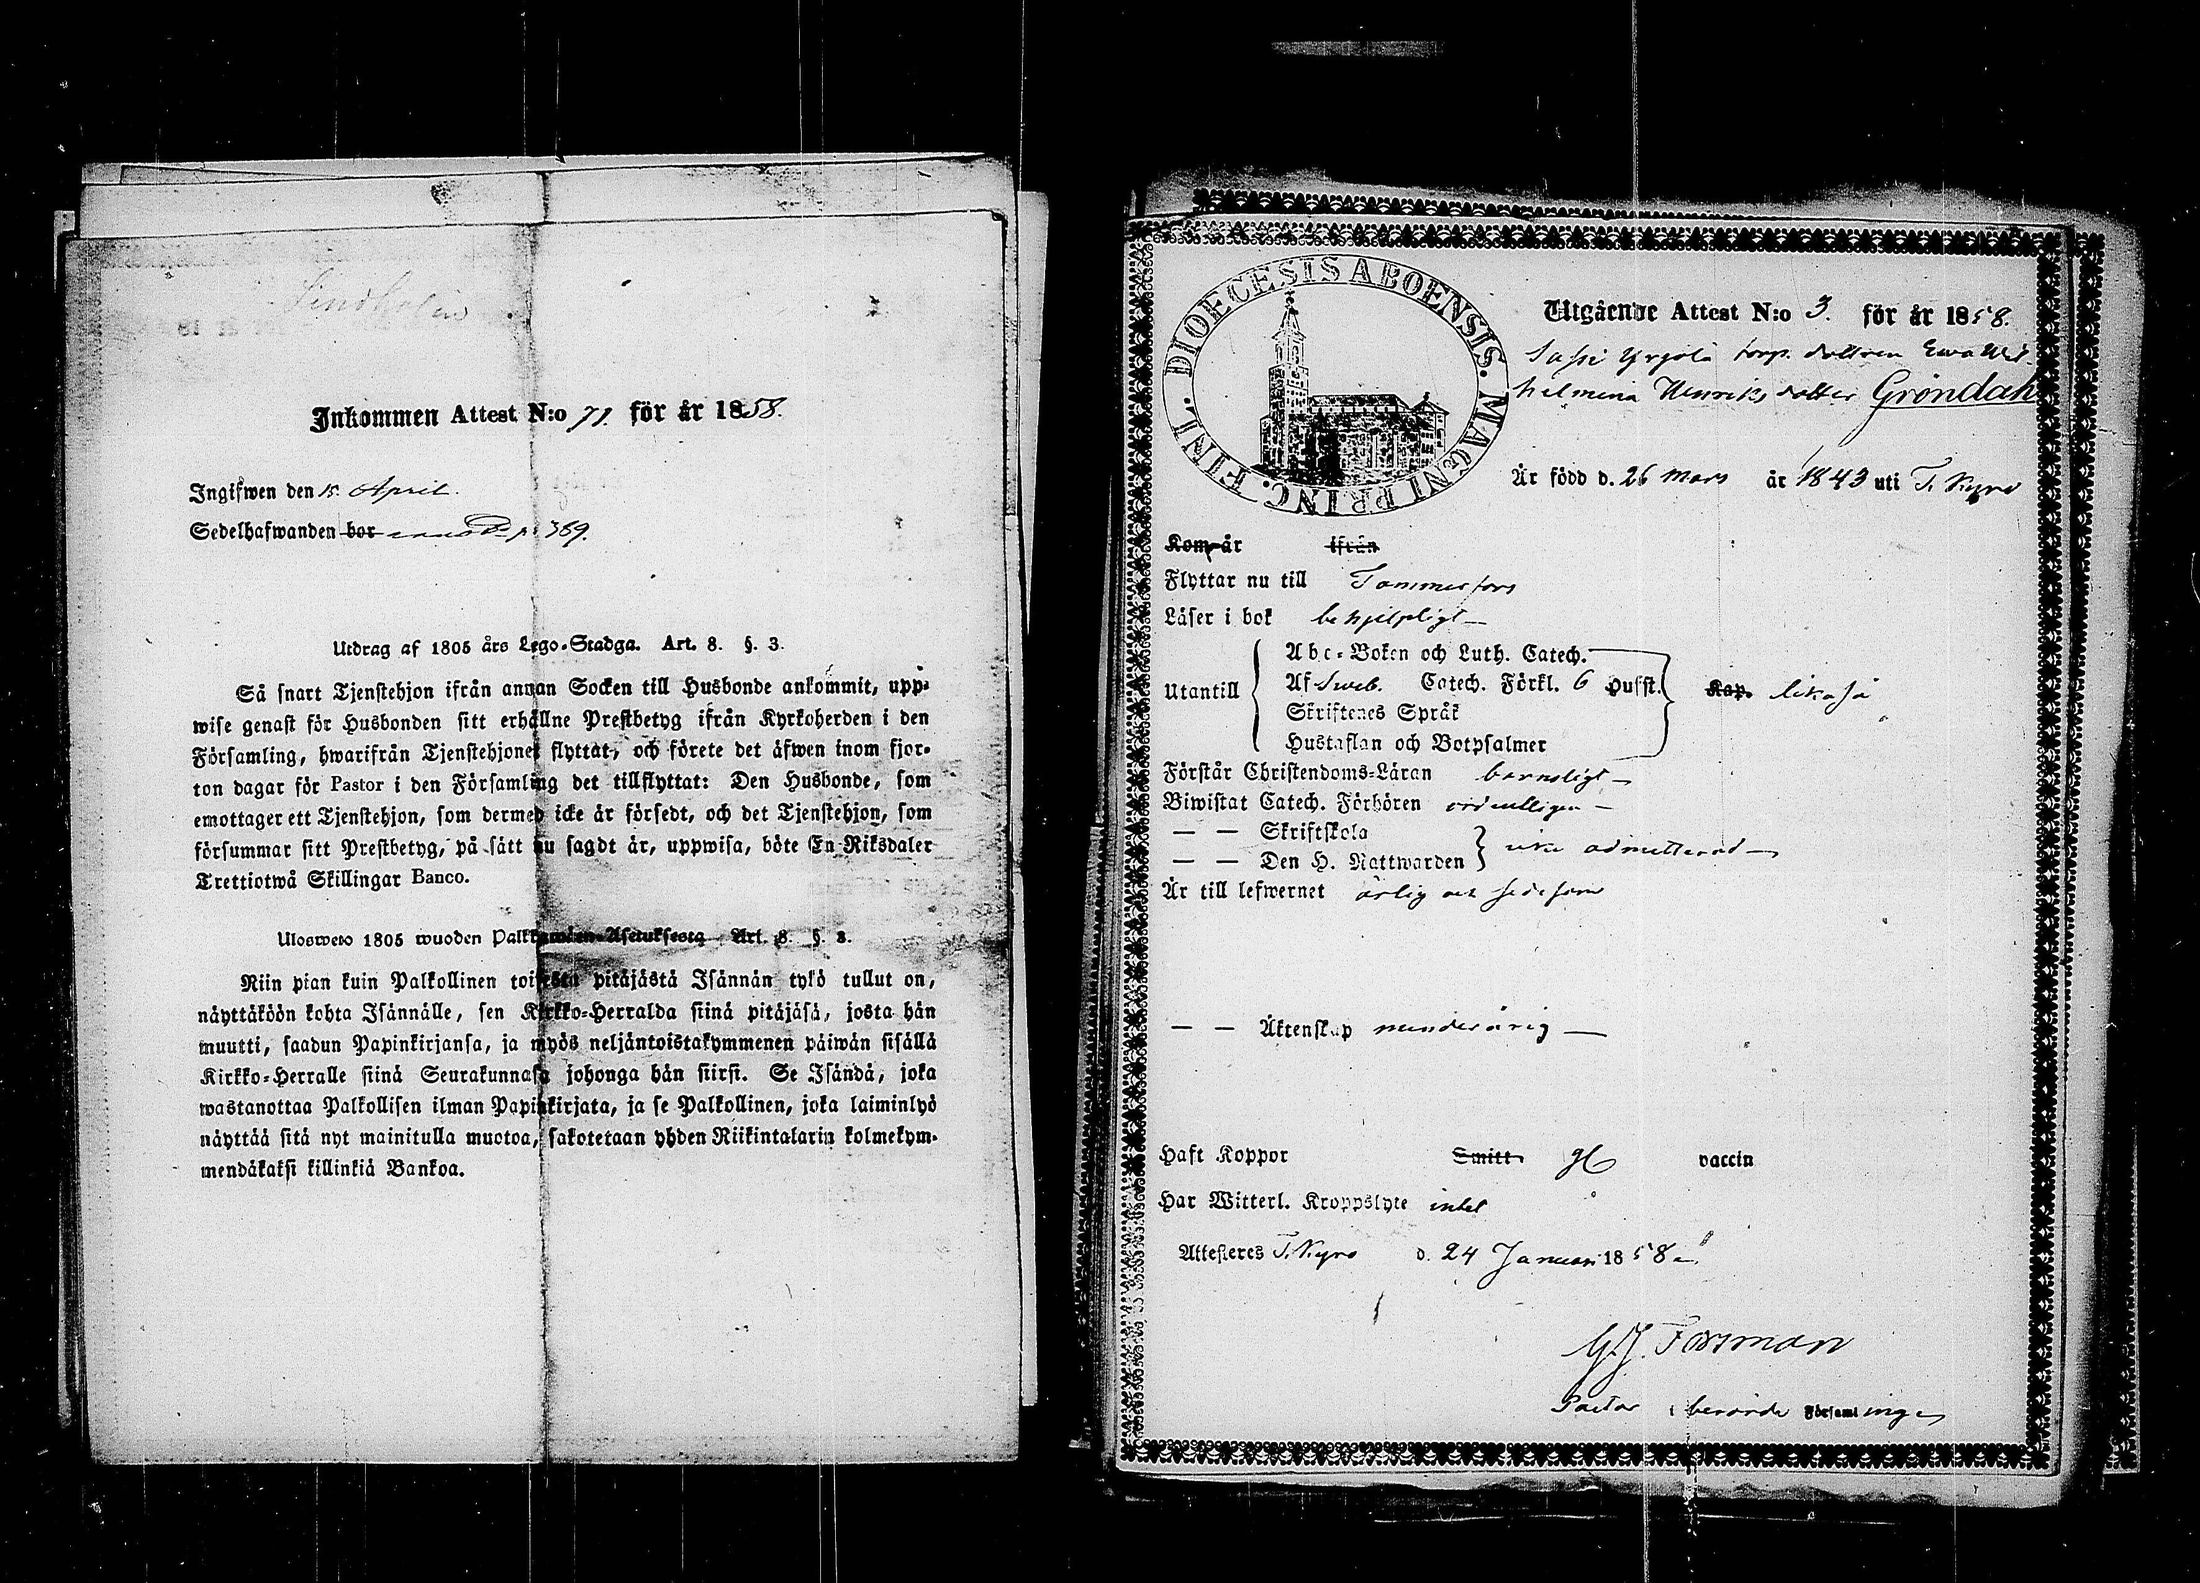 Lindholm
Inkommen Attest N:o 71. för år 1858.
Ingifwen den 15. April.
Sedelhafwanden bor p. 369.
Utdrag af 1805 års Lego-Stadga. Art. 8. §. 3.
Så snart Tjenstehjon ifrån annan Socken till Husbonde ankommit, upp-
wise genast för Husbonden sitt erhållne Prestbetyg ifrån Kyrkoherden i den
Församling, hwarifrån Tjenstehjonet flyttat, och förete det äfwen inom fjor-
ton dagar för Pastor i den Församling det tillflyttat: Den Husbonde, som
emottager ett Tjenstehjon, som dermed icke är försedt, och det Tjenstehjon, som
försummar sitt Prestbetyg, på sätt nu sagdt är, uppwisa, böte En Riksdaler
Trettiotwå Skillingar Banco.
Ulosweto 1805 wuoden Palkkawäen-Asetuksesta Art. 8. §. 3.
Niin pian kuin Palkollinen toisesta pitäjästä Isännän tykö tullut on,
näyttäköön kohta Isännälle, sen Kirkko-Herralda siinä pitäjäsä, josta hän
muutti, saadun Papinkirjansa, ja myös neljäntoistakymmenen päiwän sisällä
Kirkko-Herralle siinä Seurakunnasa johonga hän siirsi. Se Isändä, joka
wastanottaa Palkollisen ilman Papinkirjata, ja se Palkollinen, joka laiminlyö
näyttää sitä nyt mainitulla muotoa, sakotetaan yhden Riikintalarin kolmekym-
mendäkaksi killinkiä Bankoa.
DIOECESIS ABOENSIS. MAGNI PRINC. FINL.
Utgående Attest N:o 3. för år 1858.
Sassi Yrjölä torp. dottren Ewa Wil-
helmina Henriksdotter Gröndahl
Är född d. 26 Mars år 1843 uti T. Kyro
Kom år ifrån
Flyttar nu till Tammerfors
Läser i bok behjelpligt
Utantill
Abc-Boken och Luth. Catech.
Af Sweb. Catech. Förkl. 6 Hufst. Kap. likaså
Skriftenes Språk
Hustaflan och Botpsalmer
Förstår Christendoms-Läran barnsligt
Biwistat Catech. Förhören ordentligen
— — Skriftskola
— — Den H. Nattwarden icke admitterad
Är till lefwernet ärlig och sedesam
— — Äktenskap minderårig
Haft Koppor Smitt. vaccin
Har Witterl. Kroppslyte intet
Attesteres T. Kyro d. 24 Januari 1858
G. J. Forsman
Pastor i berörde Församlingen